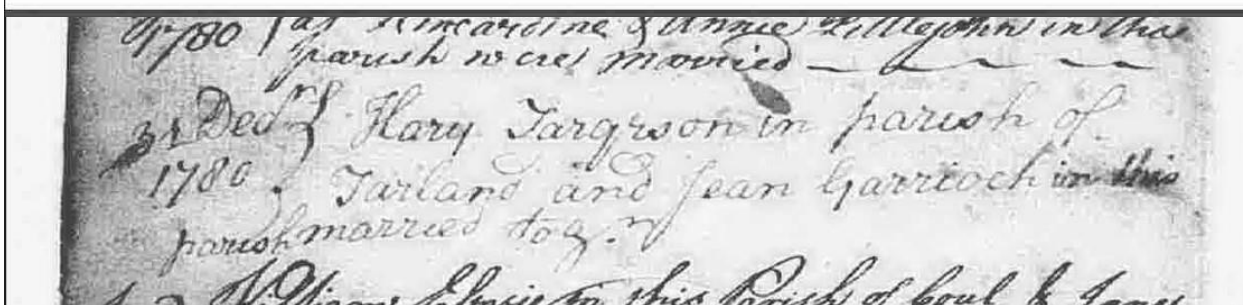 1780 at Kincardine & Annie Littlejohn in that
parish were married
31 Decr Hary Targrson in parish of
1780 Tarland and Jean Garrioch in this
parish married togr.
William in this Parish of Coul &